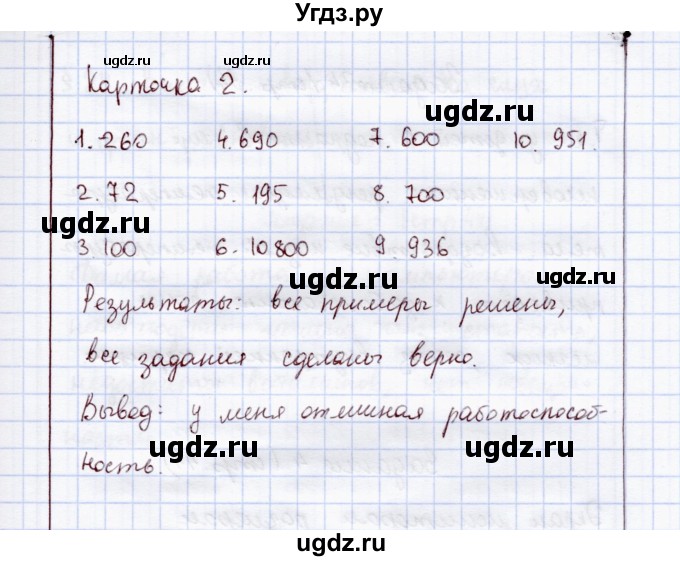 Угдз.ру
ugdz.ru ugdz.ru
Карточка 2.
ugdz.ru
1. 260 4. 690 7. 600 10. 951.
2. 72 5. 195 8. 700
ugdz.ru ugdz.ru
3. 100 6. 10800 9. 936
ugdz.ru ugdz.ru
Результаты: все примеры решены,
ugdz.ru
все задания сделаны верно.
Вывод: у меня отличная работоспособ-
ugdz.ru ugdz.ru
ность.
ugdz.ru